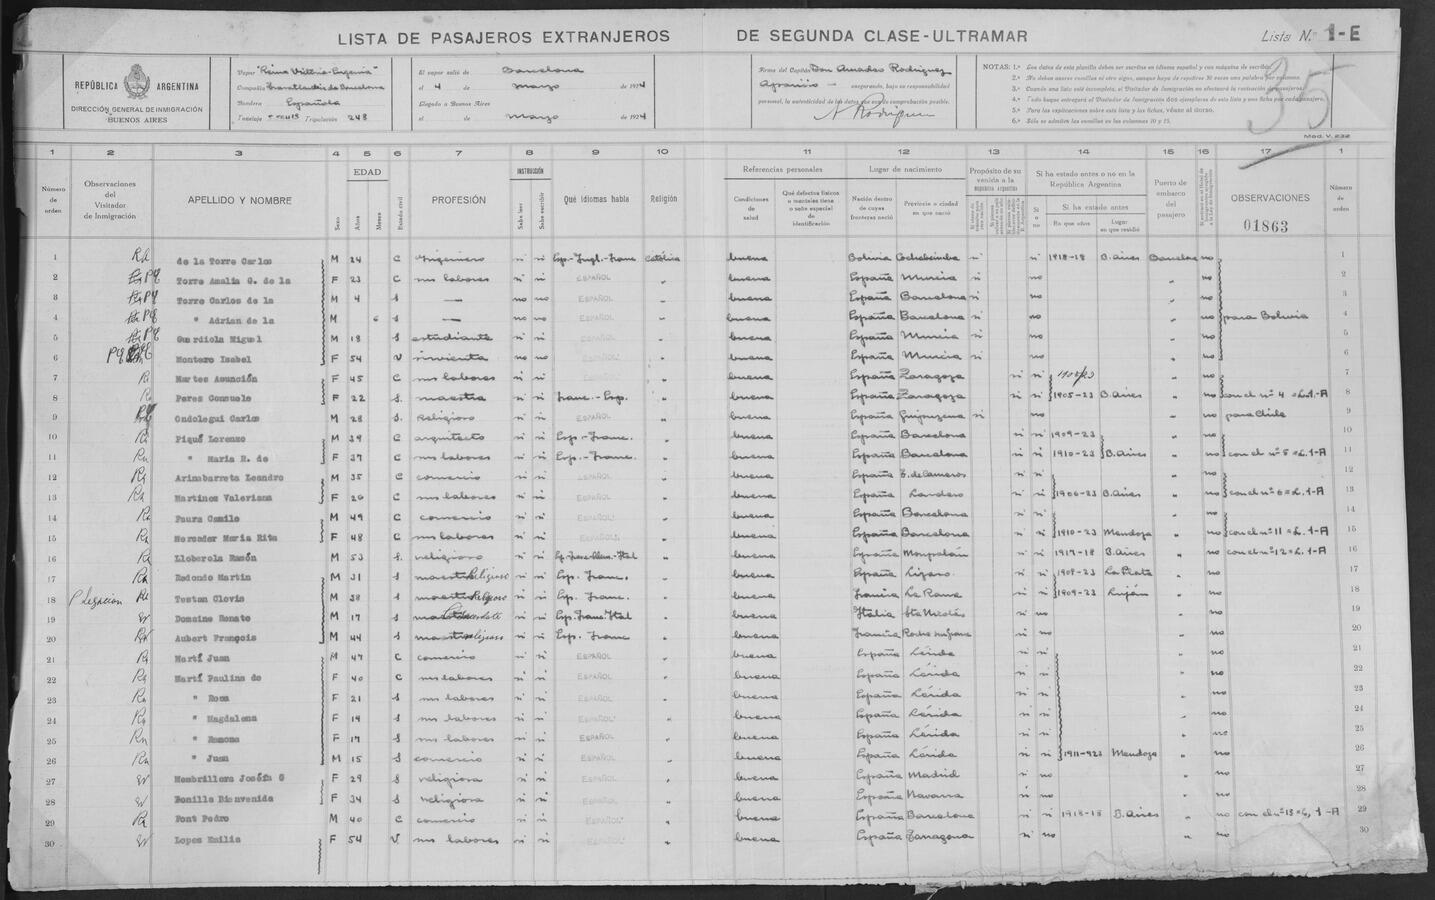 LISTA DE PASAJEROS EXTRANJEROS DE SEGUNDA CLASE-ULTRAMAR
Lista N.° 1-E
REPÚBLICA ARGENTINA
DIRECCIÓN GENERAL DE INMIGRACIÓN
BUENOS AIRES
Vapor "Reina Victoria-Eugenia"
Compañía Trasatlántica de Barcelona
Bandera Española
Tonelaje Tripulación 248
El vapor salió de Barcelona
el 4 de Marzo de 1924
Llegado a Buenos Aires
el de Marzo de 1924
Firma del Capitán Don Amadeo Rodriguez
Aparicio - asegurando, bajo su responsabilidad
personal, la autenticidad de los datos que son de comprobación posible.
A Rodriguez
NOTAS: 1.° Los datos de esta planilla deben ser escritos en idioma español y con máquina de escribir.
2.° No deben usarse comillas ni otro signo, aunque haya de repetirse 30 veces una palabra por columna.
3.° Cuando una lista esté incompleta, el Visitador de Inmigración no efectuará la revisación de pasajeros.
4.° Todo buque entregará al Visitador de Inmigración dos ejemplares de esta lista y una ficha por cada pasajero.
5.° Para las explicaciones sobre esta lista y las fichas, véase al dorso.
6.° Sólo se admiten las comillas en las columnas 10 y 15.
35
Mod. V. 232
1 2 3 4 5 6 7 8 9 10 11 12 13 14 15 16 17 1
Número de orden
Observaciones del Visitador de Inmigración
APELLIDO Y NOMBRE
Sexo
EDAD
Años
Meses
Estado civil
PROFESIÓN
INSTRUCCIÓN
Sabe leer
Sabe escribir
Qué idiomas habla
Religión
Referencias personales
Condiciones de salud
Qué defectos físicos o mentales tiene o seña especial de identificación
Lugar de nacimiento
Nación dentro de cuyas fronteras nació
Provincia o ciudad en que nació
Propósito de su venida a la República Argentina
Si ha estado antes o no en la República Argentina
Si o no
Si ha estado antes
En que años
Lugar en que residió
Puerto de embarco del pasajero
OBSERVACIONES
01863
Número de orden
1 de la Torre Carlos M 24 C Ingeniero si si Esp.-Ingl.-Franc Católica buena Bolivia Cochabamba si si 1918-18 B. Aires Barcelona no 1
2 Torre Amalia G. de la F 23 C sus labores si si ESPAÑOL " buena España Murcia si no " no 2
3 Torre Carlos de la M 4 S — no no ESPAÑOL " buena España Barcelona si no " no 3
4 " Adrian de la M 6 S — no no ESPAÑOL " buena España Barcelona si no " no para Bolivia 4
5 Guardiola Miguel M 18 S estudiante si si ESPAÑOL " buena España Murcia si no " no 5
6 Montero Isabel F 54 V sirvienta no no ESPAÑOL " buena España Murcia si no " no 6
7 Martes Asunción F 45 C sus labores si si " buena España Zaragoza si si " no 7
8 Peres Consuelo F 22 S. maestra si si Franc.-Esp. " buena España Zaragoza si si 1905-23 B. Aires " no con el n° 4 = L. 1-A 8
9 Ondolegui Carlos M 28 S. Religioso si si ESPAÑOL " buena España Guipuzcoa si no " no para Chile 9
10 Piqué Lorenzo M 39 C arquitecto si si Esp.-Franc. " buena España Barcelona si si 1909-23 " no 10
11 " Maria R. de F 37 C sus labores si si Esp.-Franc. " buena España Barcelona si si 1910-23 B. Aires " no con el n° 5 = L. 1-A 11
12 Arimbarreta Leandro M 35 C comercio si si ESPAÑOL " buena España de Cameros si si " no 12
13 Martinez Valeriana F 26 C sus labores si si ESPAÑOL " buena España si si 1906-23 B. Aires " no con el n° 6 = L. 1-A 13
14 Paura Camilo M 49 C comercio si si ESPAÑOL " buena España Barcelona si si " no 14
15 Mercader Maria Rita F 48 C sus labores si si ESPAÑOL " buena España Barcelona si si 1910-23 Mendoza " no con el n° 11 = L. 1-A 15
16 Lloberola Ramón M 53 S. religioso si si " buena España si si 1917-18 B. Aires " no con el n° 12 = L. 1-A 16
17 Redondo Martin M 31 S Religioso si si Esp. Franc. " buena España si si 1909-23 La Plata " no 17
18 Legacion Testan Clovis M 38 S Religioso si si Esp. Franc. " buena Francia si si 1909-23 Luján " no 18
19 Domaine Renato M 17 S si si Esp. Franc. Ital " buena Italia si no " no 19
20 Aubert François M 44 S religioso si si Esp. Franc " buena Francia si no " no 20
21 Martí Juan M 47 C comercio si si ESPAÑOL " buena España Lérida si si " no 21
22 Martí Paulina de F 40 C sus labores si si ESPAÑOL " buena España Lérida si si " no 22
23 " Rosa F 21 S sus labores si si ESPAÑOL " buena España Lérida si si " no 23
24 " Magdalena F 19 S sus labores si si ESPAÑOL " buena España Lérida si si " no 24
25 " Ramona F 17 S sus labores si si ESPAÑOL " buena España Lérida si si " no 25
26 " Juan M 15 S comercio si si ESPAÑOL " buena España Lérida si si 1911-923 Mendoza " no 26
27 Membrillera Josefa G F 29 S religiosa si si ESPAÑOL " buena España Madrid si no " no 27
28 Bonilla Bienvenida F 34 S religiosa si si ESPAÑOL " buena España Navarra si no " no 28
29 Pont Pedro M 40 C comercio si si ESPAÑOL " buena España Barcelona si si 1918-18 B. Aires " no con el n° 13 = L. 1-A 29
30 Lopes Emilia F 54 V sus labores si si ESPAÑOL " buena España Tarragona si no " no 30